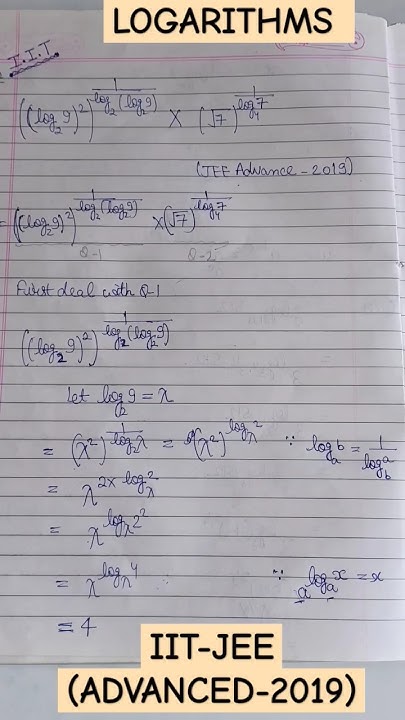 LOGARITHMS
I.I.T
((log₂9)²)^(1/log₂(log₂9)) × (√7)^(1/log₄7)
(JEE Advance - 2019)
= ((log₂9)²)^(1/log₂(log₂9)) × (√7)^(1/log₄7)
Q-1 Q-2
First deal with Q-1
((log₂9)²)^(1/log₂(log₂9))
Let log₂9 = λ
= (λ²)^(1/log₂λ) = (λ²)^(log_λ 2) ∵ log_a b = 1/log_b a
= λ^(2× log_λ 2)
= λ^(log_λ 2²)
= λ^(log_λ 4) ∵ a^(log_a x) = x
= 4
IIT-JEE
(ADVANCED-2019)